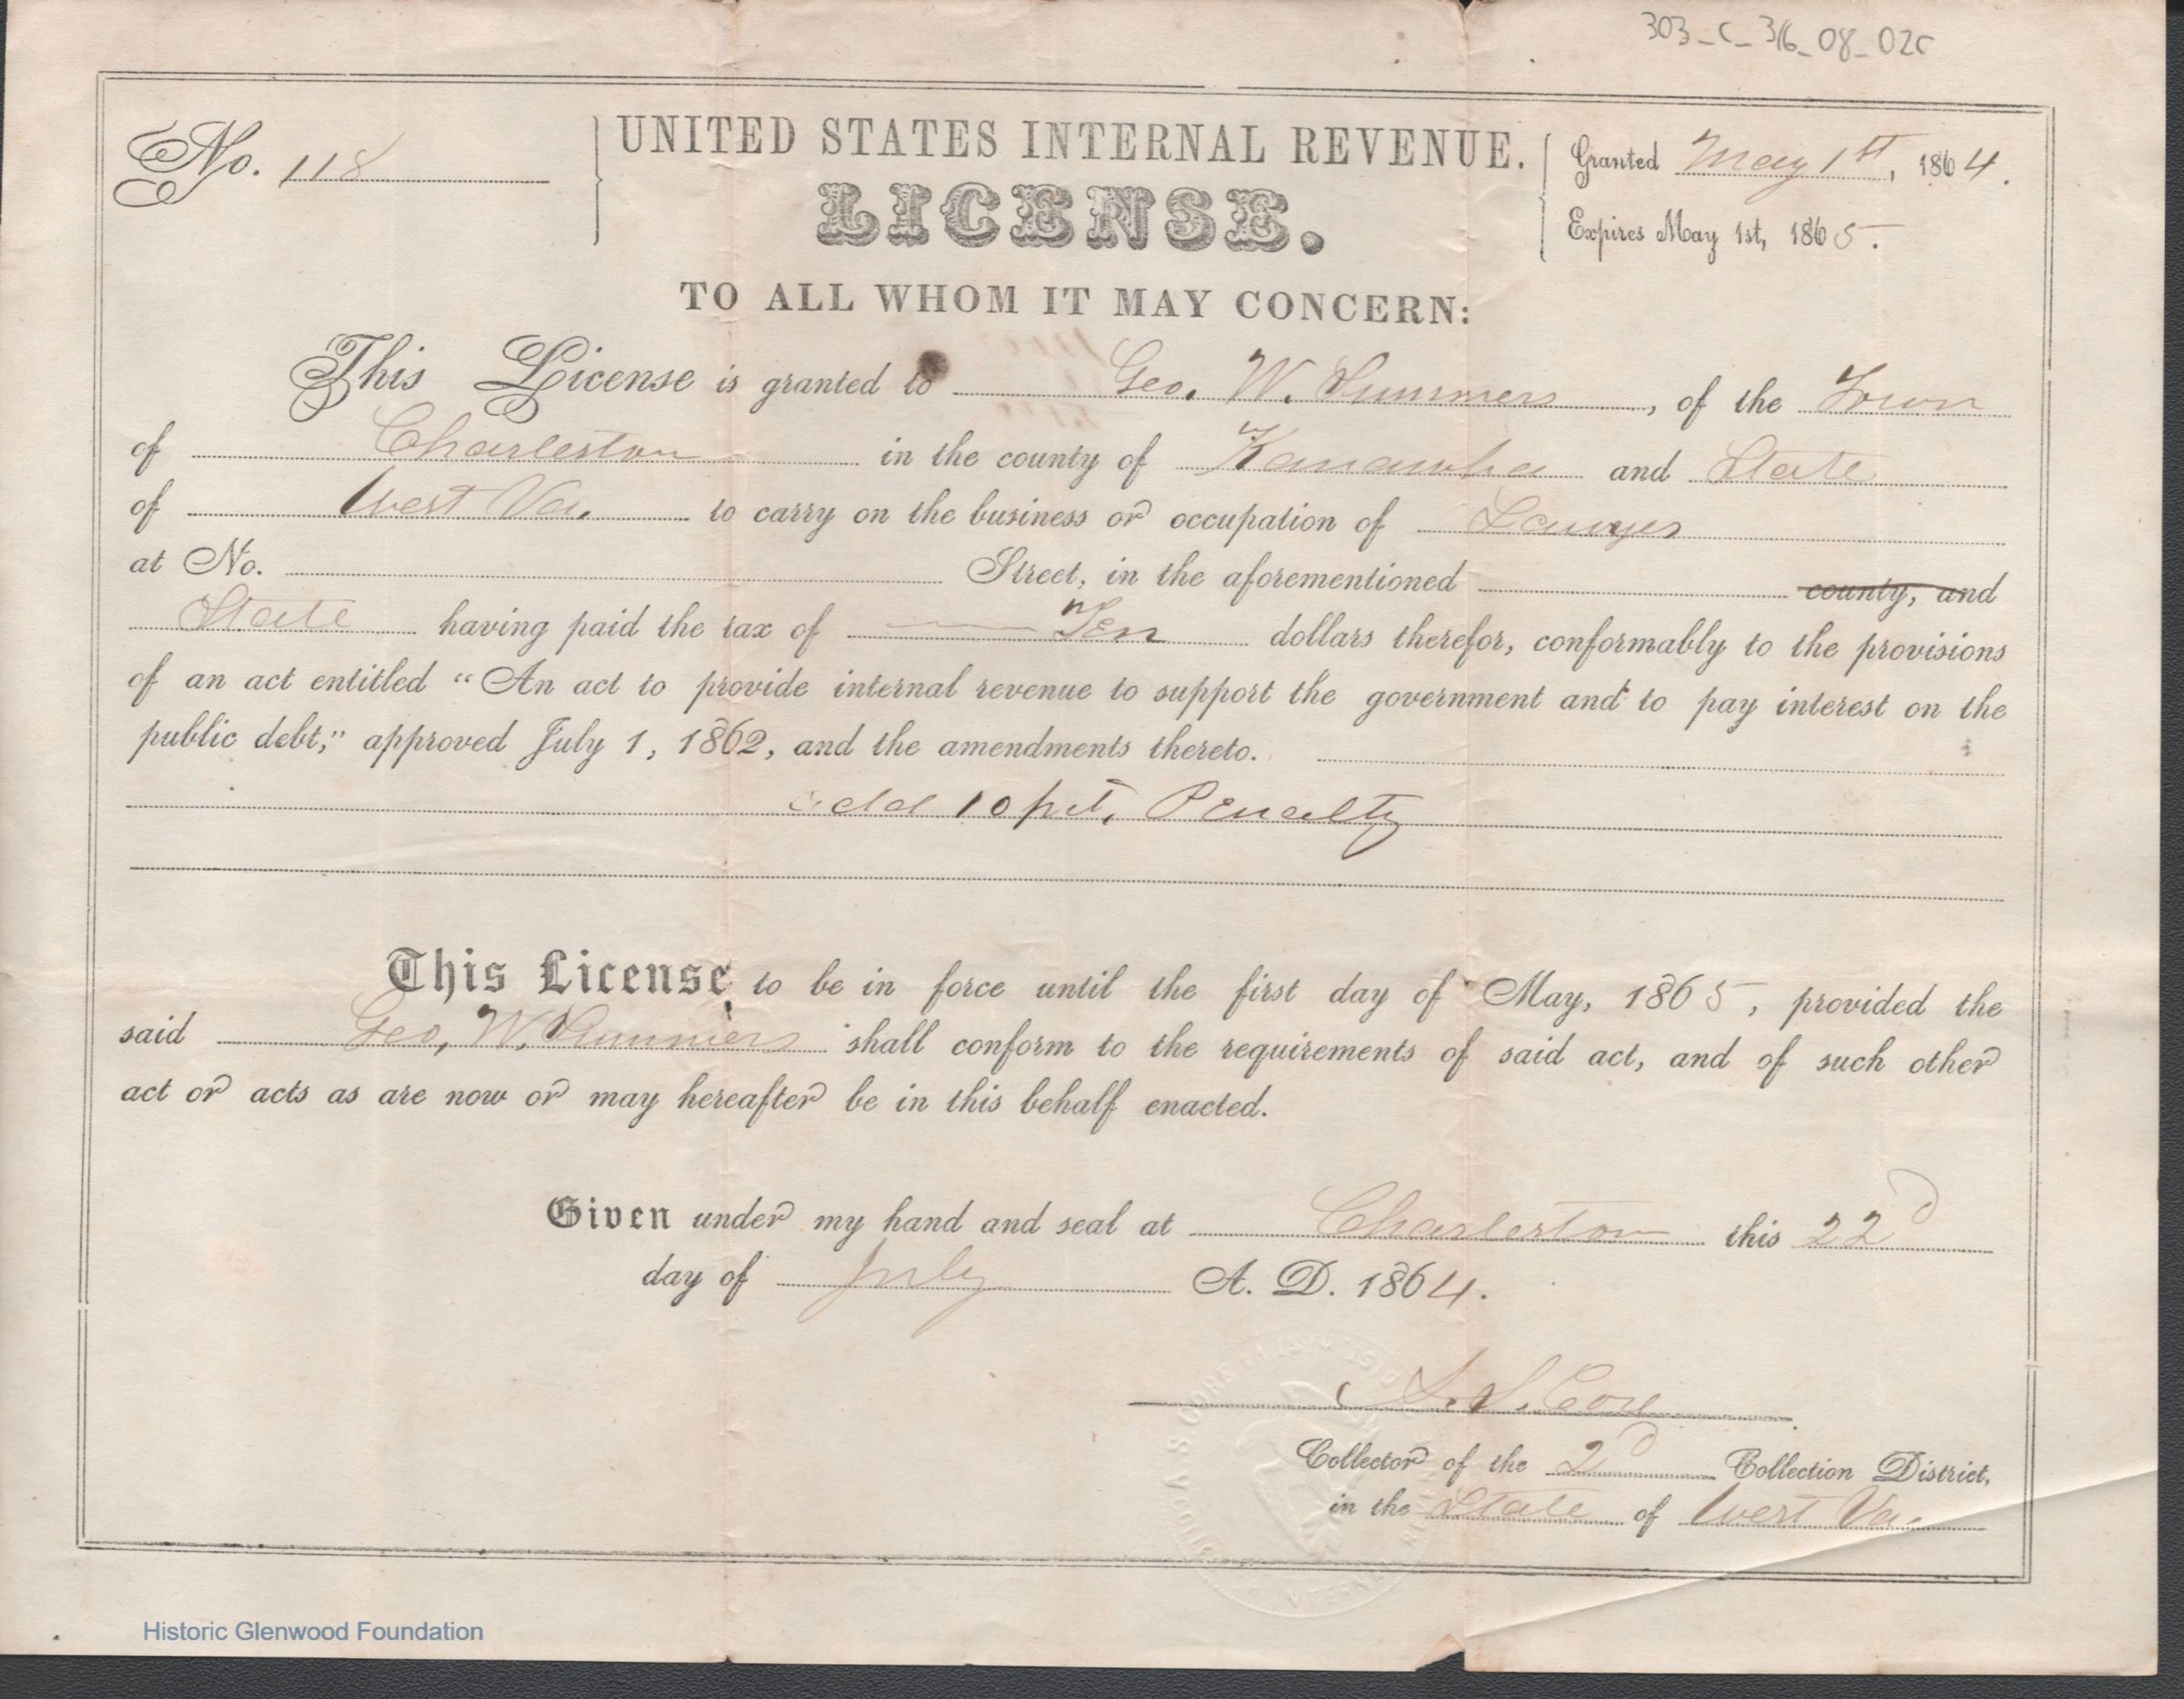 303_C_316_08_02c
No. 118
UNITED STATES INTERNAL REVENUE.
LICENSE.
Granted May 1st, 1864.
Expires May 1st, 1865.
TO ALL WHOM IT MAY CONCERN:
This License is granted to Geo. W. Summers, of the Town
of Charleston in the county of Kanawha and State
of West Va. to carry on the business or occupation of Lawyer
at No. Street, in the aforementioned county, and
State having paid the tax of Ten dollars therefor, conformably to the provisions
of an act entitled "An act to provide internal revenue to support the government and to pay interest on the
public debt," approved July 1, 1862, and the amendments thereto.
add 10 pct. Penalty
This License to be in force until the first day of May, 1865, provided the
said Geo. W. Summers shall conform to the requirements of said act, and of such other
act or acts as are now or may hereafter be in this behalf enacted.
Given under my hand and seal at Charleston this 22d
day of July A. D. 1864.
S. Cox
Collector of the 2d Collection District,
in the State of West Va.
Historic Glenwood Foundation